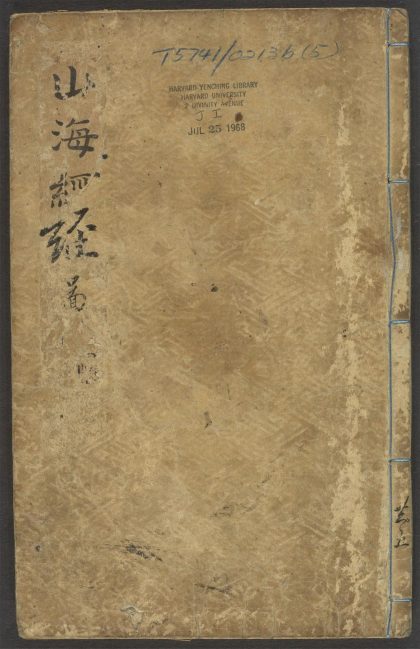 T5741/0213b(5)
HARVARD-YENCHING LIBRARY
HARVARD UNIVERSITY
2 DIVINITY AVENUE
J I
JUL 25 1968
山海經
共五